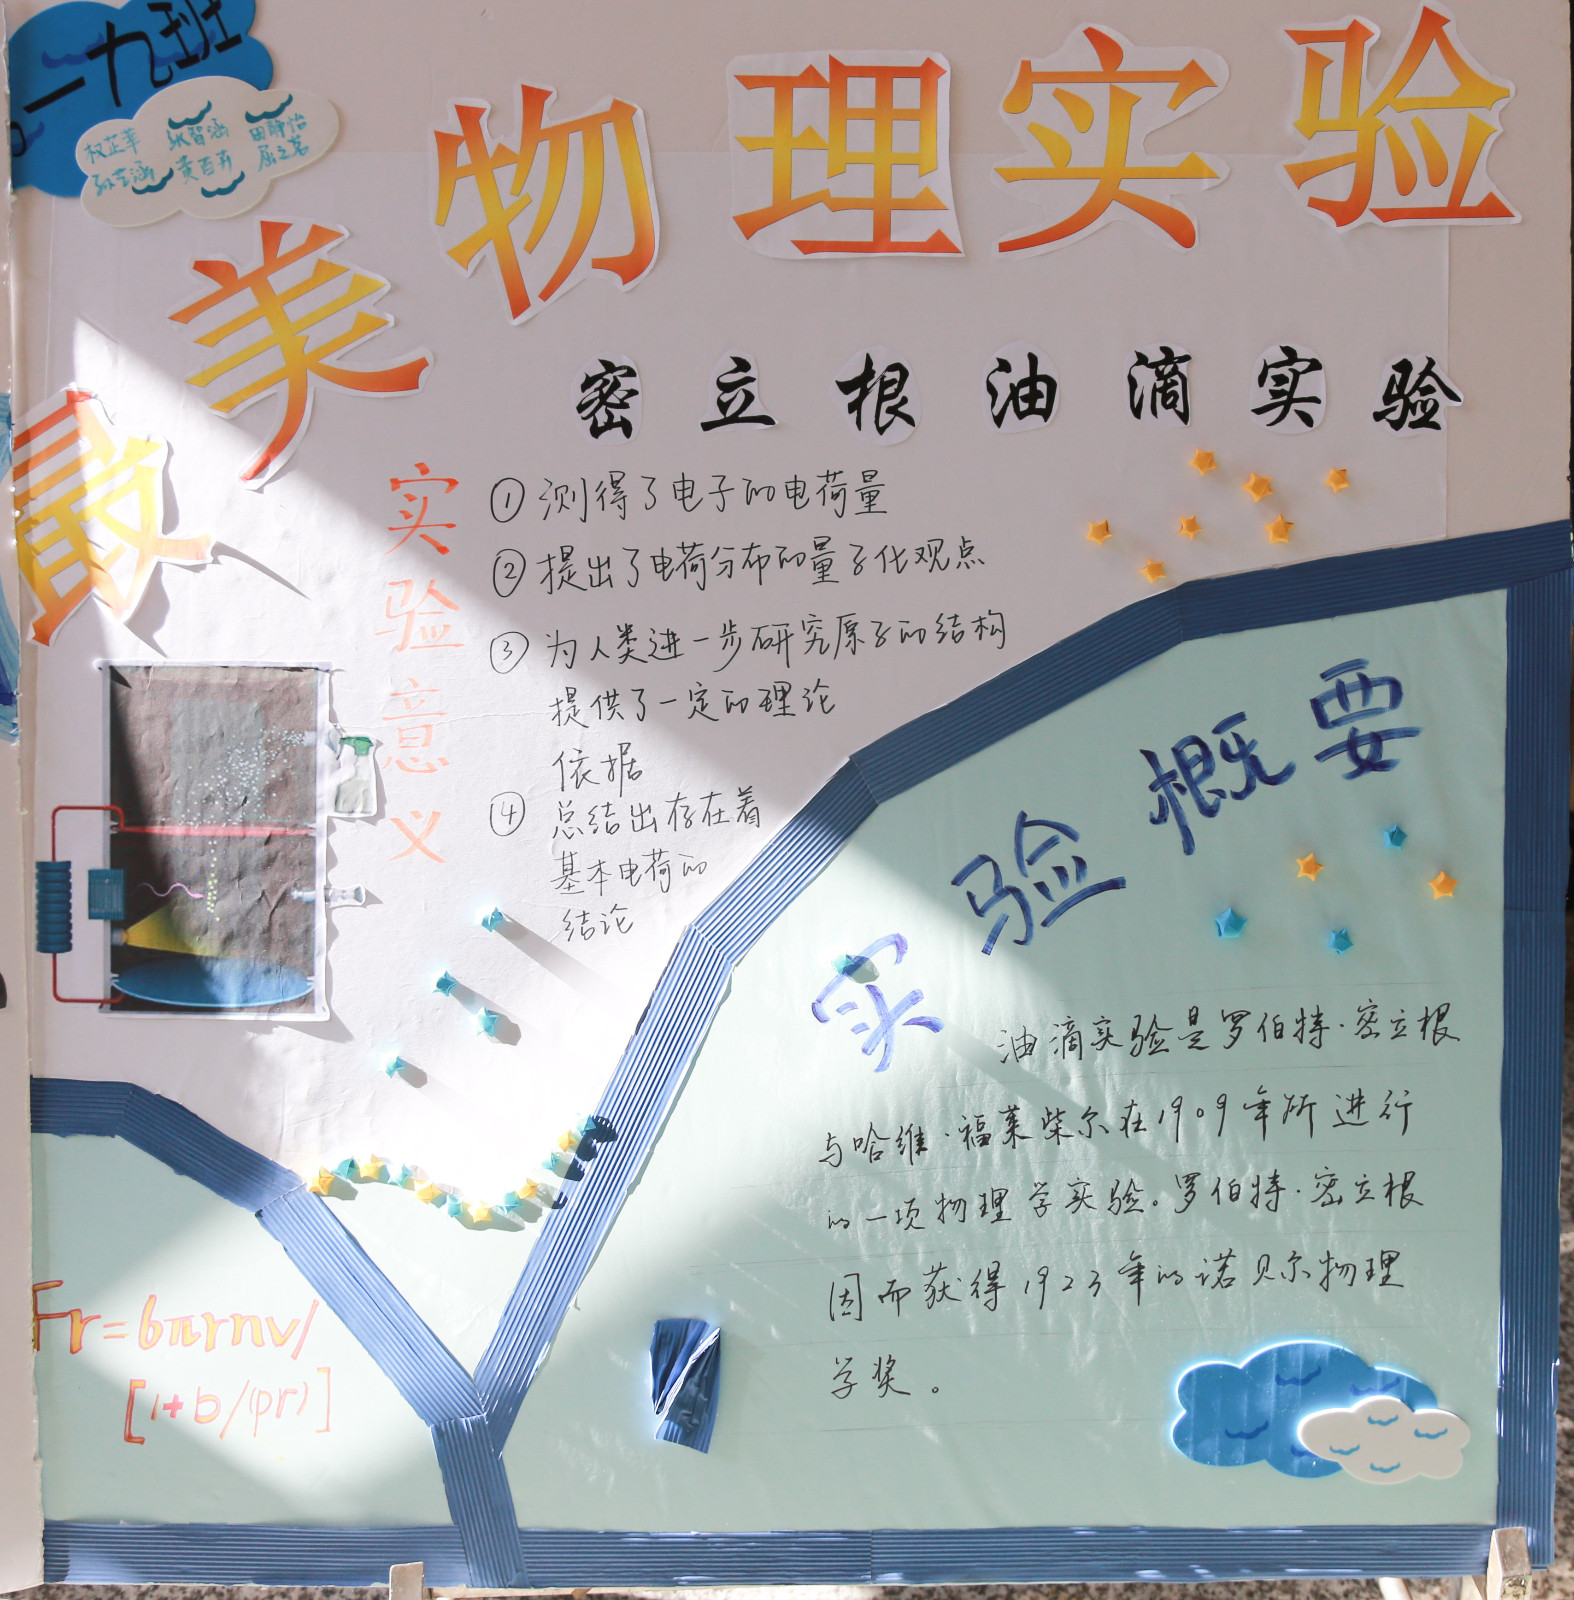 一九班
权芷苇 张智涵 田静怡
黄百卉 屈之茗
最美物理实验
密立根油滴实验
实验意义
① 测得了电子的电荷量
② 提出了电荷分布的量子化观点
③ 为人类进一步研究原子的结构
提供了一定的理论
依据
④ 总结出存在着
基本电荷的
结论
实验概要
油滴实验是罗伯特·密立根
与哈维·福莱柴尔在1909年所进行
的一项物理学实验。罗伯特·密立根
因而获得1923年的诺贝尔物理
学奖。
Fr=6πrnv/
[1+b/(pr)]